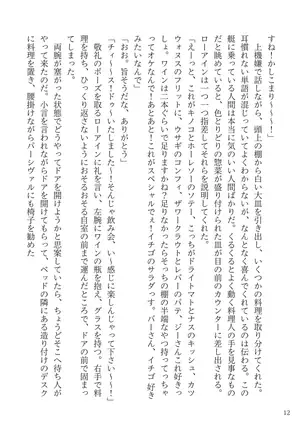 すね！かしこまり〜！」
　上機嫌で話しながら、頭上の棚から白い大皿を引き出し、いくつかの料理を取り分けていく。
耳慣れない単語が混じっていてよくわからないが、なんとなく喜んでくれているのは伝わる。この
艇に乗っている人間は本当に気のいい人間ばかりだ。くるくるとよく動く料理人の手を見事なもの
だと眺めていると、色とりどりの惣菜が盛り付けられた皿が目の前のカウンターに差し出される。
ローアインは一つ一つ指差してそれらを説明してくれた。
「えーっと、これがキノコとホーレンソーのソテー、こっちがドライトマトとナスのキッシュ、カツ
ウォスのフリット、ウサギのコンフィ、ザワークラウトとレバーのパテ、ジーさんこれ好き
っすよね。ワインは二本ぐらいで足りますか？足りなかったらそっちの棚の半端なやつ持ってっちゃ
ってオケなんで！あとあと！これがスペシャルでえ！イチゴのサラダっす、パーさん、イチゴ好き
みたいなんで」
「おお。旨そうだな、ありがとう」
「チィ〜ース！ドゥ〜いたしまして〜！そんじゃ飲み会、いい感じに楽しんじゃって下さい〜！」
　敬礼のポーズを取るローアインに礼を言い、左腕にワインの瓶を抱え、グラスを持つ。右手で料
理を持ち、ひっくり返さないようにおそるおそる自室の前まで運んだところで、ドアの前で一度立
ち止まった。
　両腕が塞がった状態でどうやってドアを開けようかと思案していたら、ちょうどそこへ待ち人が
やって来た。小言を言われながらドアを開けてもらって、ベッドの隣にある造り付けのデスク
に料理を置き、腰掛けながらパーシヴァルにも椅子を勧めた
12